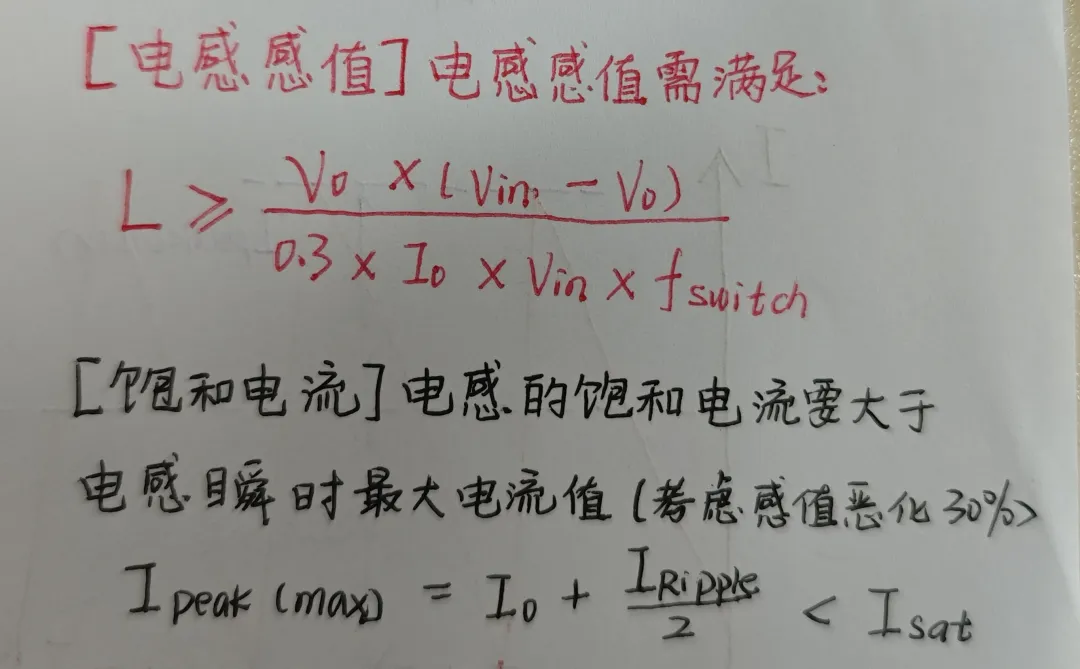 [电感感值]电感感值需满足:
L ≥ \frac{V_0 × (V_{in} - V_0)}{0.3 × I_0 × V_{in} × f_{switch}}
[饱和电流]电感的饱和电流要大于
电感瞬时最大电流值(考虑感值恶化30%)
I_{peak (max)} = I_0 + \frac{I_{Ripple}}{2} < I_{sat}